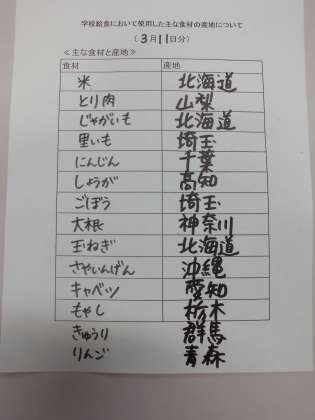 学校給食において使用した主な食材の産地について
(3月11日分)
＜主な食材と産地＞
食材 産地
米 北海道
とり肉 山梨
じゃがいも 北海道
里いも 埼玉
にんじん 千葉
しょうが 高知
ごぼう 埼玉
大根 神奈川
玉ねぎ 北海道
さやいんげん 沖縄
キャベツ 愛知
もやし 栃木
きゅうり 群馬
りんご 青森